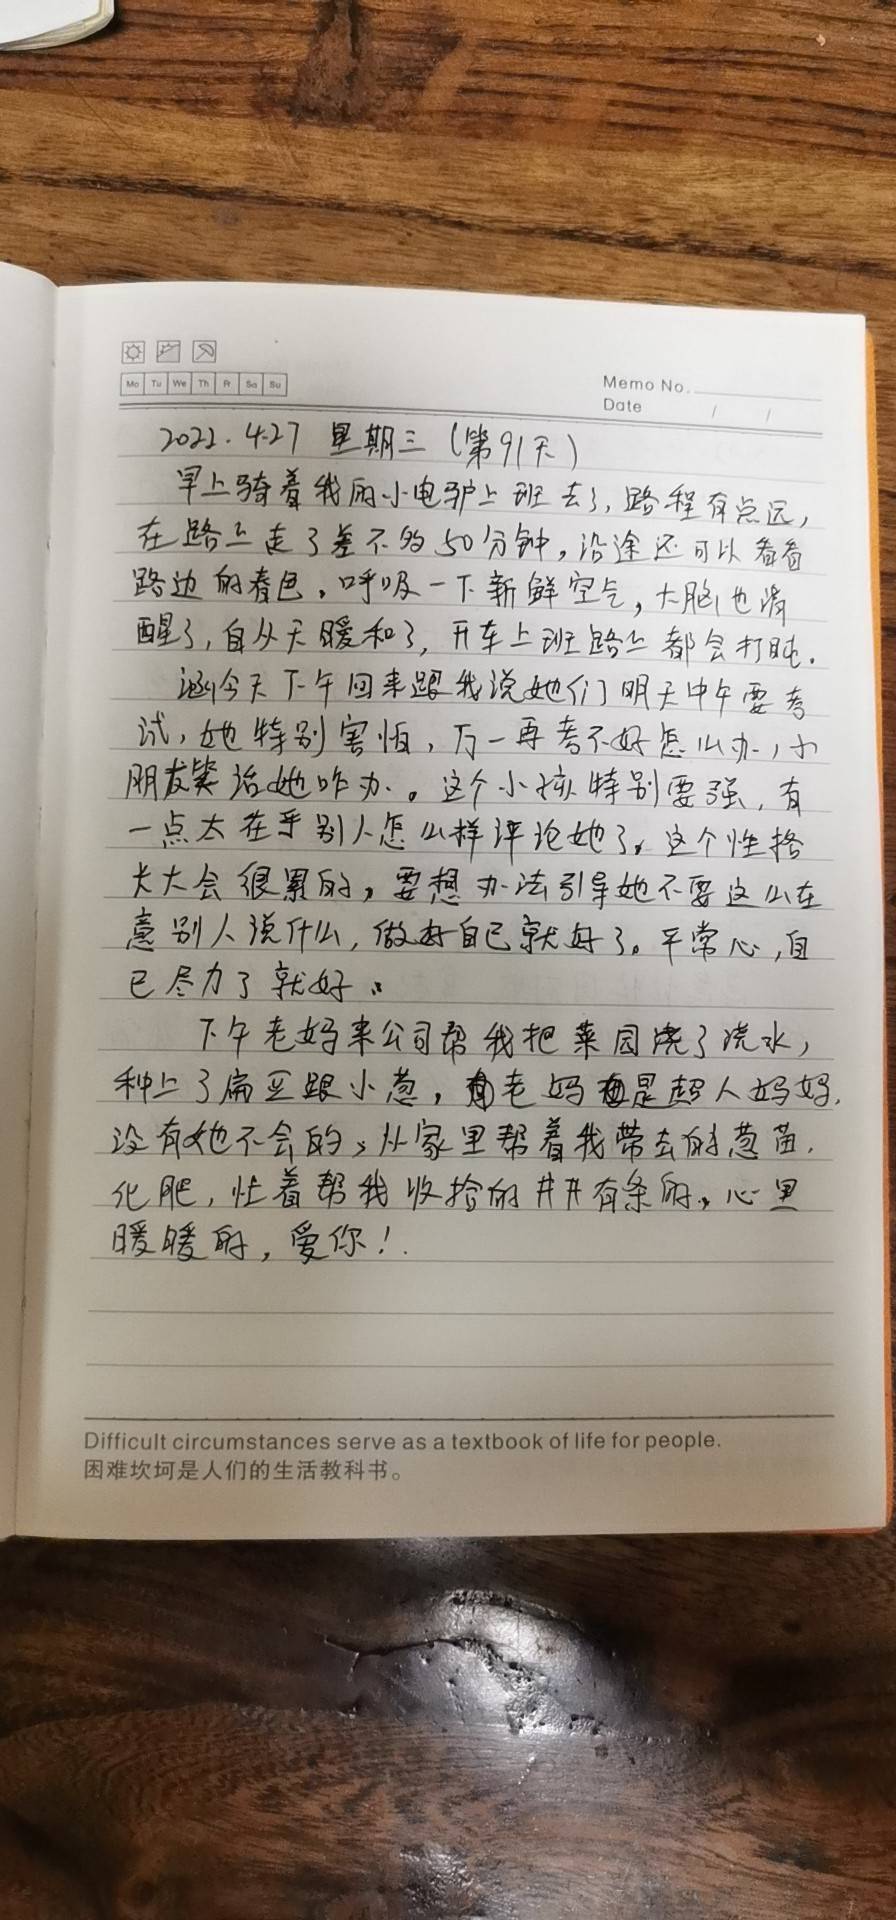 Mo Tu We Th Fr Sa Su
Memo No.
Date / /
2022.4.27 星期三（第91天）
早上骑着我的小电驴上班去了，路程有点远，
在路上走了差不多50分钟，沿途还可以看看
路边的春色，呼吸一下新鲜空气，大脑也清
醒了，自从天暖和了，开车上班路上都会打盹.
涵今天下午回来跟我说她们明天中午要考
试，她特别害怕，万一再考不好怎么办，小
朋友笑话她咋办。这个小孩特别要强，有
一点太在乎别人怎么样评论她了，这个性格
长大会很累的，要想办法引导她不要这么在
意别人说什么，做好自己就好了。平常心，自
己尽力了就好。
下午老妈来公司帮我把菜园浇了浇水，
种上了扁豆跟小葱，老妈是超人妈妈，
没有她不会的，从家里帮着我带去的葱苗，
化肥，忙着帮我收拾的井井有条的，心里
暖暖的，爱你！
Difficult circumstances serve as a textbook of life for people.
困难坎坷是人们的生活教科书。